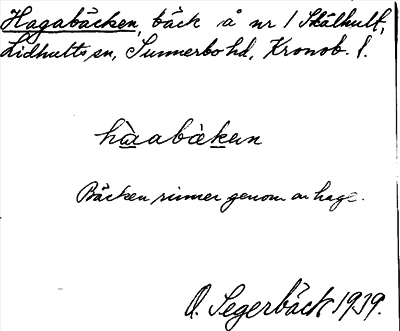 Hagabäcken, bäck å nr 1 Skälhult,
Lidhults sn, Sunnerbo hd, Kronob. l.
hàabàken
Bäcken rinner genom en hage.
O. Segerbäck 1939.